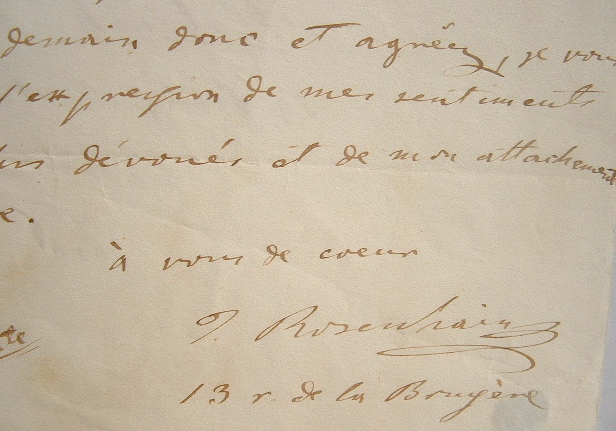 demain donc et agréez, je vous
l'expression de mes sentiments
dévoués et de mon attachement
e.
à vous de coeur
J. Rosenhain
13 r. de la Bruyère